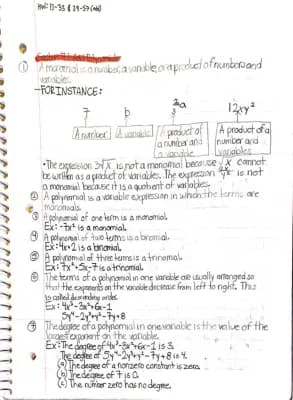 HW: 13-35 & 39-57 (odd)
① A monomial is a number, a variable, or a product of numbers and
variables.
-FOR INSTANCE:
7 b a 12xy²
A number A variable A product of a number and a variable A product of a number and variables
•The expression 3√x is not a monomial because √x cannot
be written as a product of variables. The expression is not
a monomial because it is a quotient of variables.
② A polynomial is a variable expression in which the terms are
monomials.
③ A polynomial of one term is a monomial.
Ex: -7x² is a monomial.
④ A polynomial of two terms is a binomial.
Ex: 4x+2 is a binomial.
⑤ A polynomial of three terms is a trinomial.
Ex: 7x²+5x-7 is a trinomial.
⑥ The terms of a polynomial in one variable are usually arranged so
that the exponents on the variable decrease from left to right. This
is called descending order.
Ex: 4x³-3x²+6x-1
5y⁴-2y³+y²-7y+8
⑦ The degree of a polynomial in one variable is the value of the
largest exponent on the variable.
Ex: The degree of 4x³-3x²+6x-1 is 3.
The degree of 5y⁴-2y³+y²-7y+8 is 4.
(a) The degree of a nonzero constant is zero.
(b) The degree of 7 is 0.
(c) The number zero has no degree.